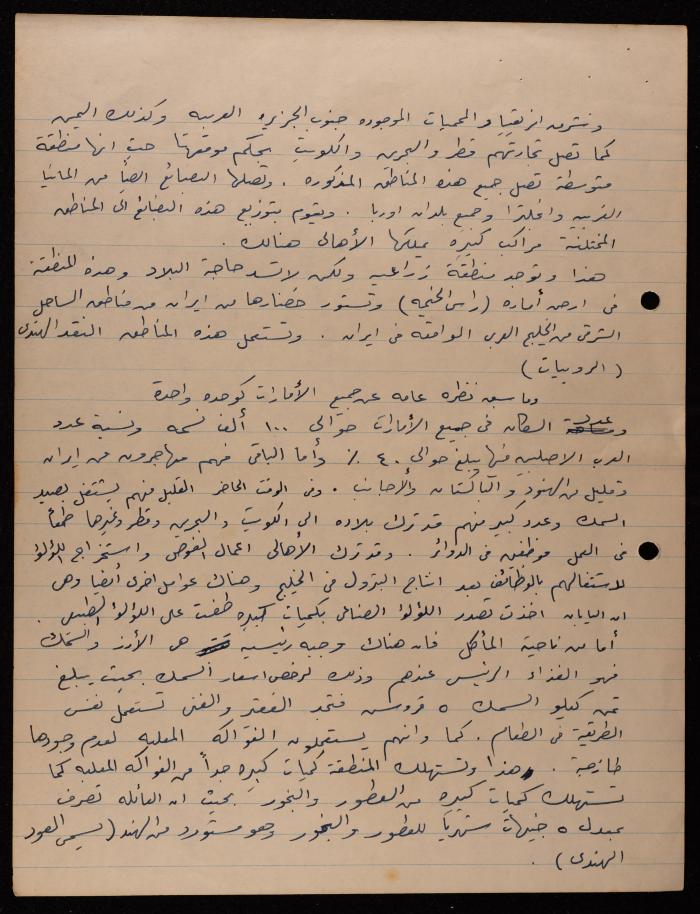 وشرق افريقيا والمحميات الموجوده جنوب الجزيره العربيه وكذلك اليمن
كما تصل تجارتهم قطر والبحرين والكويت بحكم موقعها حيث انها منطقة
متوسطة تصل جميع هذه المناطق المذكوره . وتصلها البضائع ايضاً من المانيا
الغربيه وانجلترا وجميع بلدان اوربا . ويقوم بتوزيع هذه البضائع الى المناطق
المختلفة مراكب كبيره يملكها الأهالى هنالك .
هذا وتوجد منطقة زراعيه ولكن لا تسد حاجة البلاد وهذه المنطقة
فى ارض أماره (راس الخيمه) وتستورد خضارها من ايران من مناطق الساحل
الشرقى من الخليج العربى الواقعة فى ايران . وتستعمل هذه المناطق النقد الهندى
(الروبيات)
وما سبق نظره عامه عن جميع الأمارات كوحده واحدة
وعدد السكان فى جميع الأمارات حوالى ١٠٠ ألف نسمه ونسبة عدد
العرب الاصليين فيها يبلغ حوالى ٤٠ ٪ وأما الباقى فهم مهاجرون من إيران
وقليل من الهنود والباكستان والأجانب . وفى الوقت الحاضر القليل منهم يشتغل بصيد
السمك وعدد كبير منهم قد ترك بلاده الى الكويت والبحرين وقطر وغيرها طمعاً
فى العمل موظفين فى الدوائر . وقد ترك الأهالى اعمال الغوص واستخراج اللؤلؤ
لاشتغالهم بالوظائف بعد انتاج البترول فى الخليج وهناك عوامل اخرى أيضا وهى
ان اليابان اخذت تصدر اللؤلؤ الصناعى بكميات كبيره طغت على اللؤلؤ الطبيعى .
أما من ناحية المأكل فان هناك وجبه رئيسيه هى الأرز والسمك
فهو الغذاء الرئيسى عندهم وذلك لرخص اسعار السمك بحيث يبلغ
ثمن كيلو السمك ٥ قروش فتجد الفقير والغنى تستعمل نفس
الطريقة فى الطعام . كما وانهم يستعملون الفواكه المعلبه لعدم وجودها
طازجة . هذا وتستهلك المنطقة كميات كبيره جداً من الفواكه المعلبه كما
تستهلك كميات كبيره من العطور والبخور بحيث ان العائله تصرف
بمعدل ٥ جنيهات شهرياً للعطور والبخور وهو مستورد من الهند (يسمى العود
الهندى) .